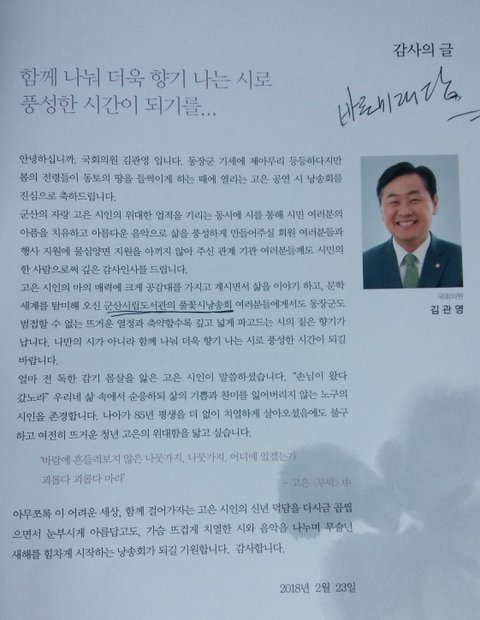 감사의 글
함께 나눠 더욱 향기 나는 시로
풍성한 시간이 되기를...
안녕하십니까. 국회의원 김관영 입니다. 동장군 기세에 제아무리 등등하다지만
봄의 전령들이 동토의 땅을 들썩이게 하는 때에 열리는 고은 공연 시 낭송회를
진심으로 축하드립니다.
군산의 자랑 고은 시인의 위대한 업적을 기리는 동시에 시를 통해 시민 여러분의
아픔을 치유하고 아름다운 음악으로 삶을 풍성하게 만들어주실 회원 여러분들과
행사 지원에 물심양면 지원을 아끼지 않아 주신 관계 기관 여러분들께도 시민의
한 사람으로써 깊은 감사인사를 드립니다.
고은 시인의 마의 매력에 크게 공감대를 가지고 계시면서 삶을 이야기 하고, 문학
세계를 탐미해 오신 군산시립도서관의 풀꽃시낭송회 여러분들에게서도 동장군도
범접할 수 없는 뜨거운 열정과 축약할수록 깊고 넓게 파고드는 시의 짙은 향기가
납니다. 나만의 시가 아니라 함께 나눠 더욱 향기 나는 시로 풍성한 시간이 되길
바랍니다.
얼마 전 독한 감기 몸살을 앓은 고은 시인이 말씀하셨습니다. “손님이 왔다
갔노라” 우리네 삶 속에서 순응하되 삶의 기쁨과 찬미를 잃어버리지 않는 노구의
시인을 존경합니다. 나아가 85년 평생을 더 없이 치열하게 살아오셨음에도 불구
하고 여전히 뜨거운 청년 고은의 위대함을 닮고 싶습니다.
‘바람에 흔들려보지 않은 나뭇가지, 나뭇가지, 어디에 있겠는가
괴롭다 괴롭다 마라’
- 고은 〈부탁〉 中
아무쪼록 이 어려운 세상, 함께 걸어가자는 고은 시인의 신년 덕담을 다시금 곱씹
으면서 눈부시게 아름답고도, 가슴 뜨겁게 치열한 시와 음악을 나누며 무술년
새해를 힘차게 시작하는 낭송회가 되길 기원합니다. 감사합니다.
2018년 2월 23일
국회의원
김 관 영